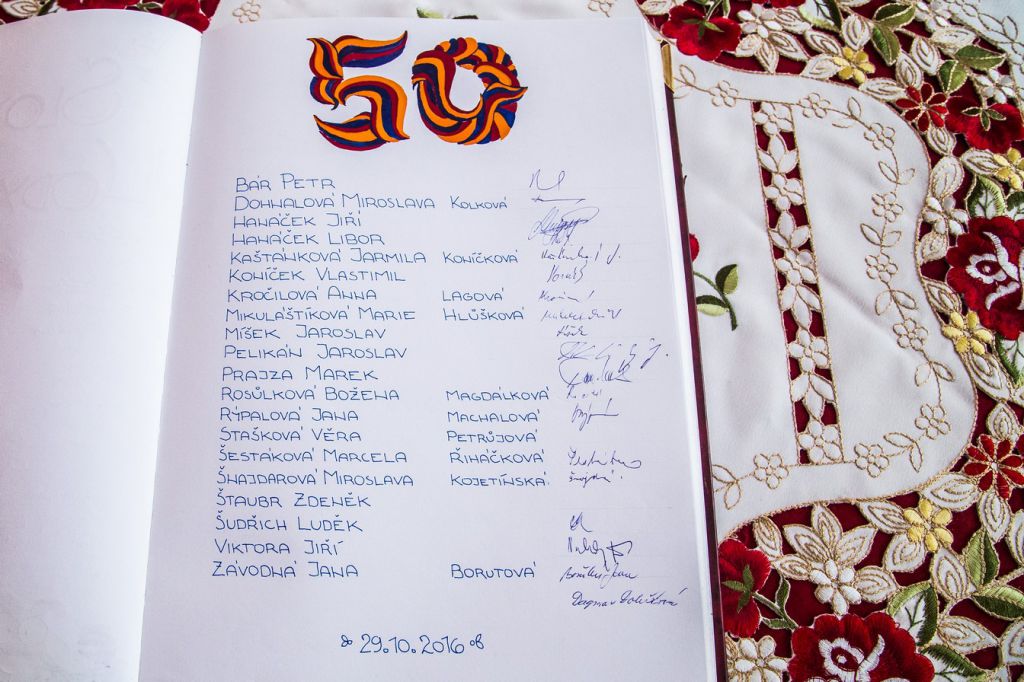 50
BÁR PETR
DOHNALOVÁ MIROSLAVA KOLKOVÁ
HANÁČEK JIŘÍ
HANÁČEK LIBOR
KAŠTÁNKOVÁ JARMILA KONÍČKOVÁ
KONÍČEK VLASTIMIL
KROČILOVÁ ANNA LAGOVÁ
MIKULÁŠTÍKOVÁ MARIE HLŮŠKOVÁ
MÍŠEK JAROSLAV
PELIKÁN JAROSLAV
PRAJZA MAREK
ROSŮLKOVÁ BOŽENA MAGDÁLKOVÁ
RÝPALOVÁ JANA MACHALOVÁ
STAŠKOVÁ VĚRA PETRŮJOVÁ
ŠESTÁKOVÁ MARCELA ŘIHÁČKOVÁ
ŠNAJDAROVÁ MIROSLAVA KOJETÍNSKÁ
ŠTAUBR ZDENĚK
ŠUDŘICH LUDĚK
VIKTORA JIŘÍ
ZÁVODNÁ JANA BORUTOVÁ
Dagmar
29.10.2016